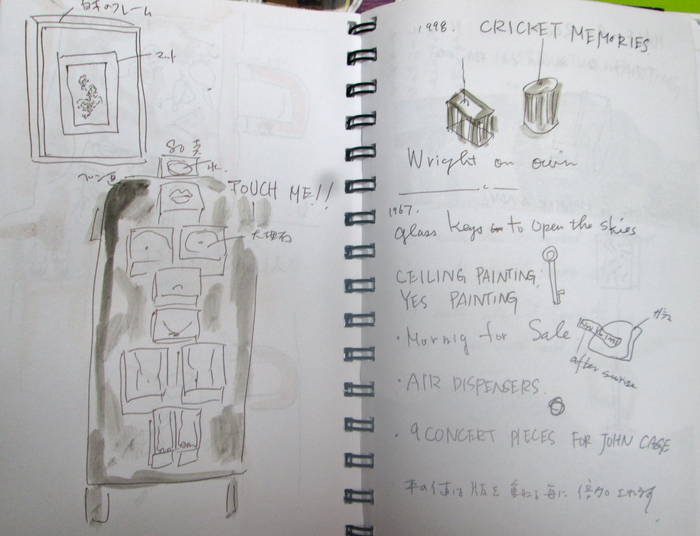 白木のフレーム
マット
水
TOUCH ME!!
大理石
1998.
CRICKET MEMORIES
Wright on own
1967.
glass keys to open the skies
CEILING PAINTING,
YES PAINTING
・Mornig for Sale
after sunrise
・AIR DISPENSERS
・9 CONCERT PIECES FOR JOHN CAGE